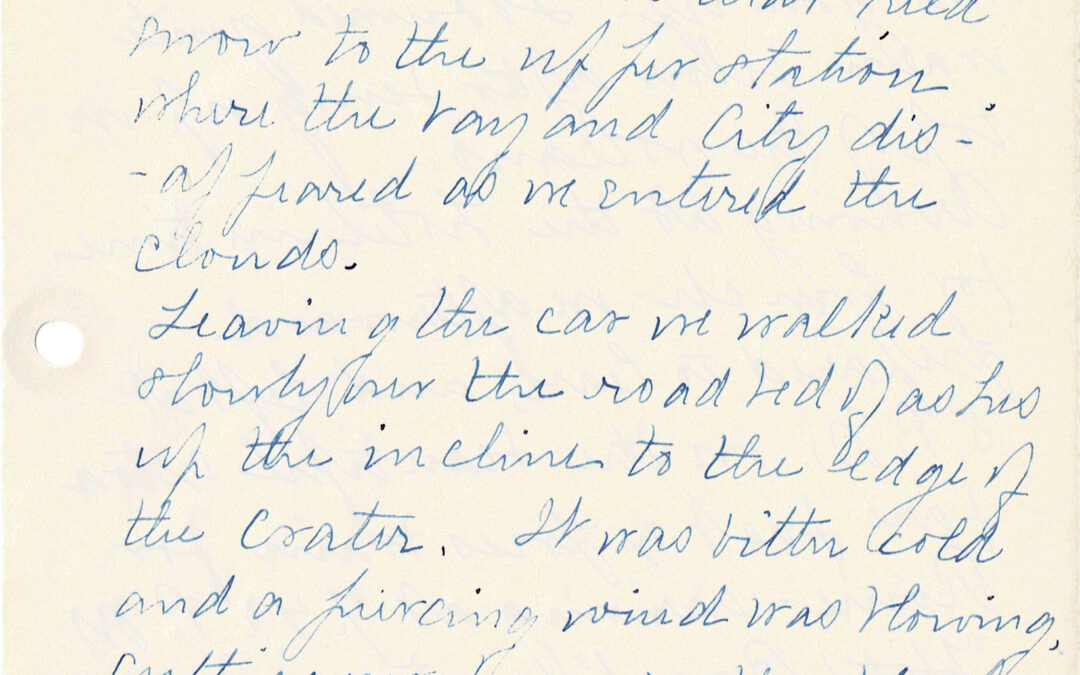 snow to the upper station
where the bay and City dis-
-appeared as we entered the
clouds.
Leaving the car we walked
slowly over the road bed of ashes
up the incline to the edge of
the crater. It was bitter cold
and a piercing wind was blowing,